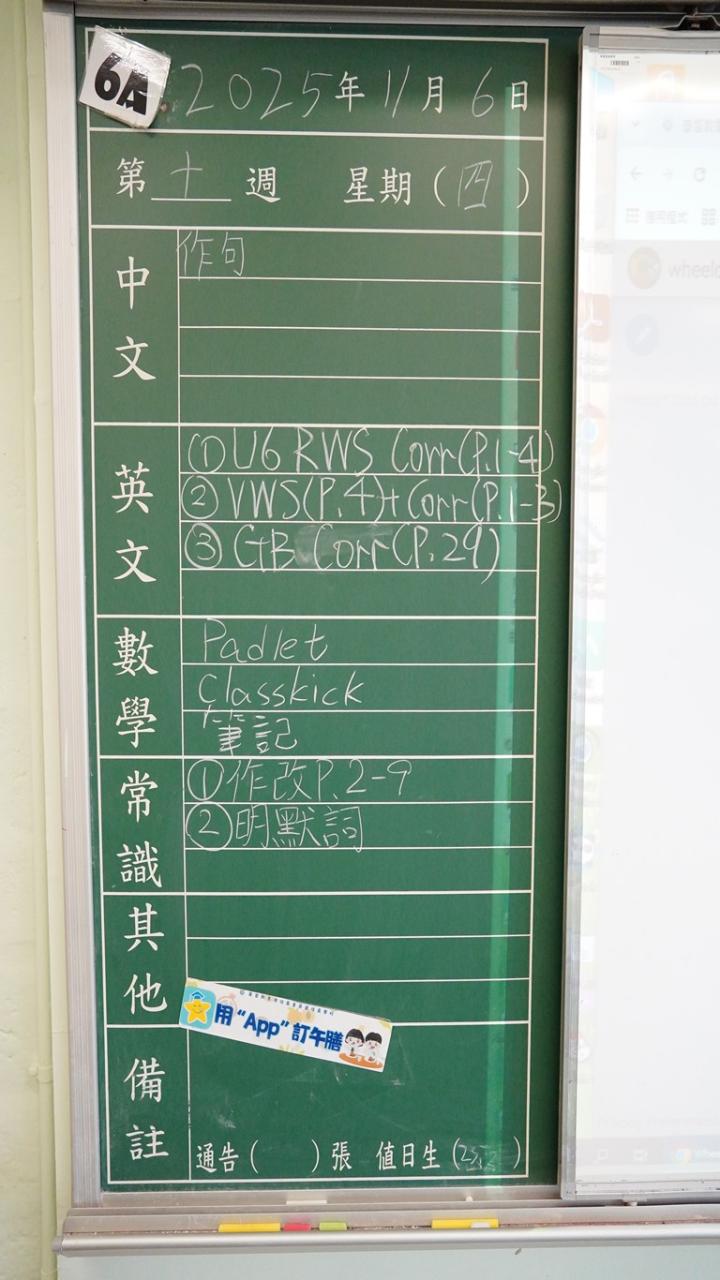 6A
2025年11月6日
第十週 星期(四)
中文
作句
英文
①U6 RWS Corr(P.1-4)
②VWS(P.4)+Corr(P.1-3)
③GB Corr(P.29)
數學
Padlet
Classkick
筆記
常識
①作改P.2-9
②明默詞
其他
用“App”訂午膳
備註
通告( )張 值日生(23,2)
wheelo